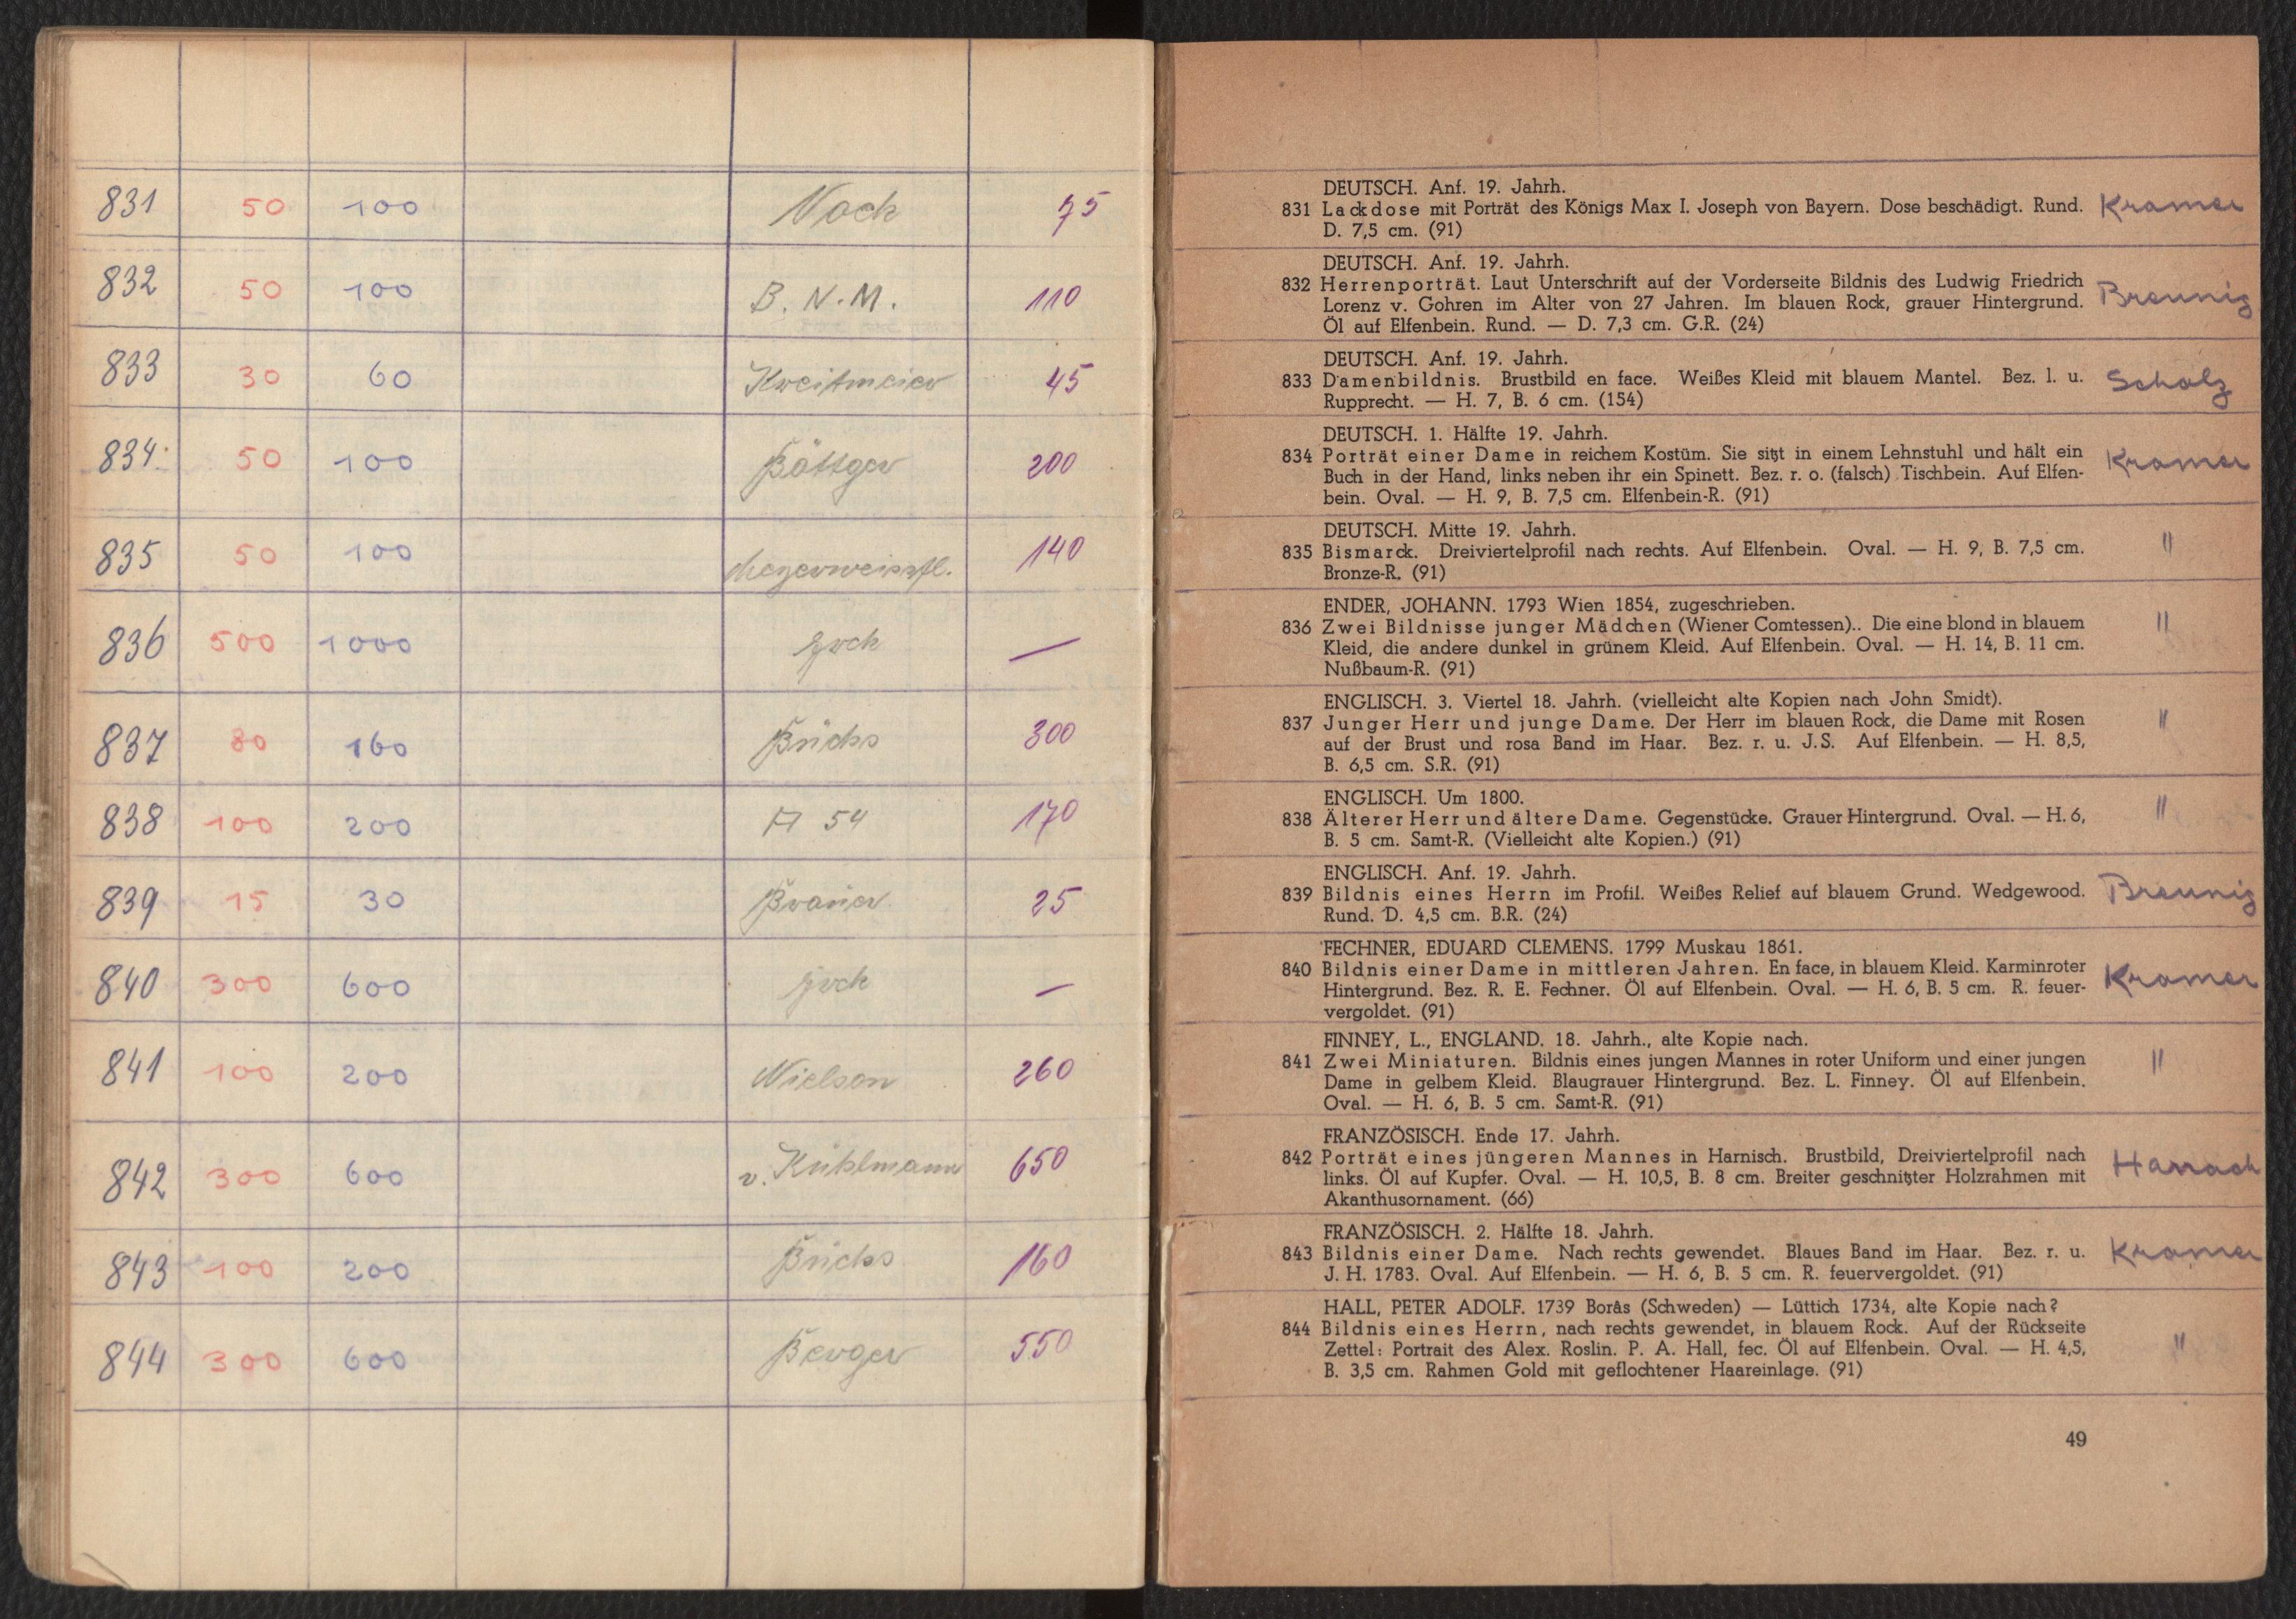 831 50 100 Nock 75
832 50 100 B. N. M. 110
833 30 60 Kreitmeier 45
834 50 100 Böttger 200
835 50 100 140
836 500 1000 zrck —
837 80 160 Brüchs 300
838 100 200 A 54 170
839 15 30 25
840 300 600 zrck —
841 100 200 Nielson 260
842 300 600 v. Kühlmann 650
843 100 200 Brüchs 160
844 300 600 Berger 550
DEUTSCH. Anf. 19. Jahrh.
831 Lackdose mit Porträt des Königs Max I. Joseph von Bayern. Dose beschädigt. Rund. Kramer
D. 7,5 cm. (91)
DEUTSCH. Anf. 19. Jahrh.
832 Herrenporträt. Laut Unterschrift auf der Vorderseite Bildnis des Ludwig Friedrich Breunig
Lorenz v. Gohren im Alter von 27 Jahren. Im blauen Rock, grauer Hintergrund.
Öl auf Elfenbein. Rund. — D. 7,3 cm. G.R. (24)
DEUTSCH. Anf. 19. Jahrh.
833 Damenbildnis. Brustbild en face. Weißes Kleid mit blauem Mantel. Bez. l. u. Scholz
Rupprecht. — H. 7, B. 6 cm. (154)
DEUTSCH. 1. Hälfte 19. Jahrh.
834 Porträt einer Dame in reichem Kostüm. Sie sitzt in einem Lehnstuhl und hält ein Kramer
Buch in der Hand, links neben ihr ein Spinett. Bez. r. o. (falsch) Tischbein. Auf Elfen-
bein. Oval. — H. 9, B. 7,5 cm. Elfenbein-R. (91)
DEUTSCH. Mitte 19. Jahrh.
835 Bismarck. Dreiviertelprofil nach rechts. Auf Elfenbein. Oval. — H. 9, B. 7,5 cm. "
Bronze-R. (91)
ENDER, JOHANN. 1793 Wien 1854, zugeschrieben.
836 Zwei Bildnisse junger Mädchen (Wiener Comtessen).. Die eine blond in blauem "
Kleid, die andere dunkel in grünem Kleid. Auf Elfenbein. Oval. — H. 14, B. 11 cm.
Nußbaum-R. (91)
ENGLISCH. 3. Viertel 18. Jahrh. (vielleicht alte Kopien nach John Smidt).
837 Junger Herr und junge Dame. Der Herr im blauen Rock, die Dame mit Rosen "
auf der Brust und rosa Band im Haar. Bez. r. u. J.S. Auf Elfenbein. — H. 8,5,
B. 6,5 cm. S.R. (91)
ENGLISCH. Um 1800.
838 Älterer Herr und ältere Dame. Gegenstücke. Grauer Hintergrund. Oval. — H. 6, "
B. 5 cm. Samt-R. (Vielleicht alte Kopien.) (91)
ENGLISCH. Anf. 19. Jahrh.
839 Bildnis eines Herrn im Profil. Weißes Relief auf blauem Grund. Wedgewood. Breunig
Rund. D. 4,5 cm. B.R. (24)
FECHNER, EDUARD CLEMENS. 1799 Muskau 1861.
840 Bildnis einer Dame in mittleren Jahren. En face, in blauem Kleid. Karminroter Kramer
Hintergrund. Bez. R. E. Fechner. Öl auf Elfenbein. Oval. — H. 6, B. 5 cm. R. feuer-
vergoldet. (91)
FINNEY, L., ENGLAND. 18. Jahrh., alte Kopie nach.
841 Zwei Miniaturen. Bildnis eines jungen Mannes in roter Uniform und einer jungen "
Dame in gelbem Kleid. Blaugrauer Hintergrund. Bez. L. Finney. Öl auf Elfenbein.
Oval. — H. 6, B. 5 cm. Samt-R. (91)
FRANZÖSISCH. Ende 17. Jahrh.
842 Porträt eines jüngeren Mannes in Harnisch. Brustbild, Dreiviertelprofil nach Harrach
links. Öl auf Kupfer. Oval. — H. 10,5, B. 8 cm. Breiter geschnitzter Holzrahmen mit
Akanthusornament. (66)
FRANZÖSISCH. 2. Hälfte 18. Jahrh.
843 Bildnis einer Dame. Nach rechts gewendet. Blaues Band im Haar. Bez. r. u. Kramer
J. H. 1783. Oval. Auf Elfenbein. — H. 6, B. 5 cm. R. feuervergoldet. (91)
HALL, PETER ADOLF. 1739 Borås (Schweden) — Lüttich 1734, alte Kopie nach?
844 Bildnis eines Herrn, nach rechts gewendet, in blauem Rock. Auf der Rückseite "
Zettel: Portrait des Alex. Roslin. P. A. Hall, fec. Öl auf Elfenbein. Oval. — H. 4,5,
B. 3,5 cm. Rahmen Gold mit geflochtener Haareinlage. (91)
49